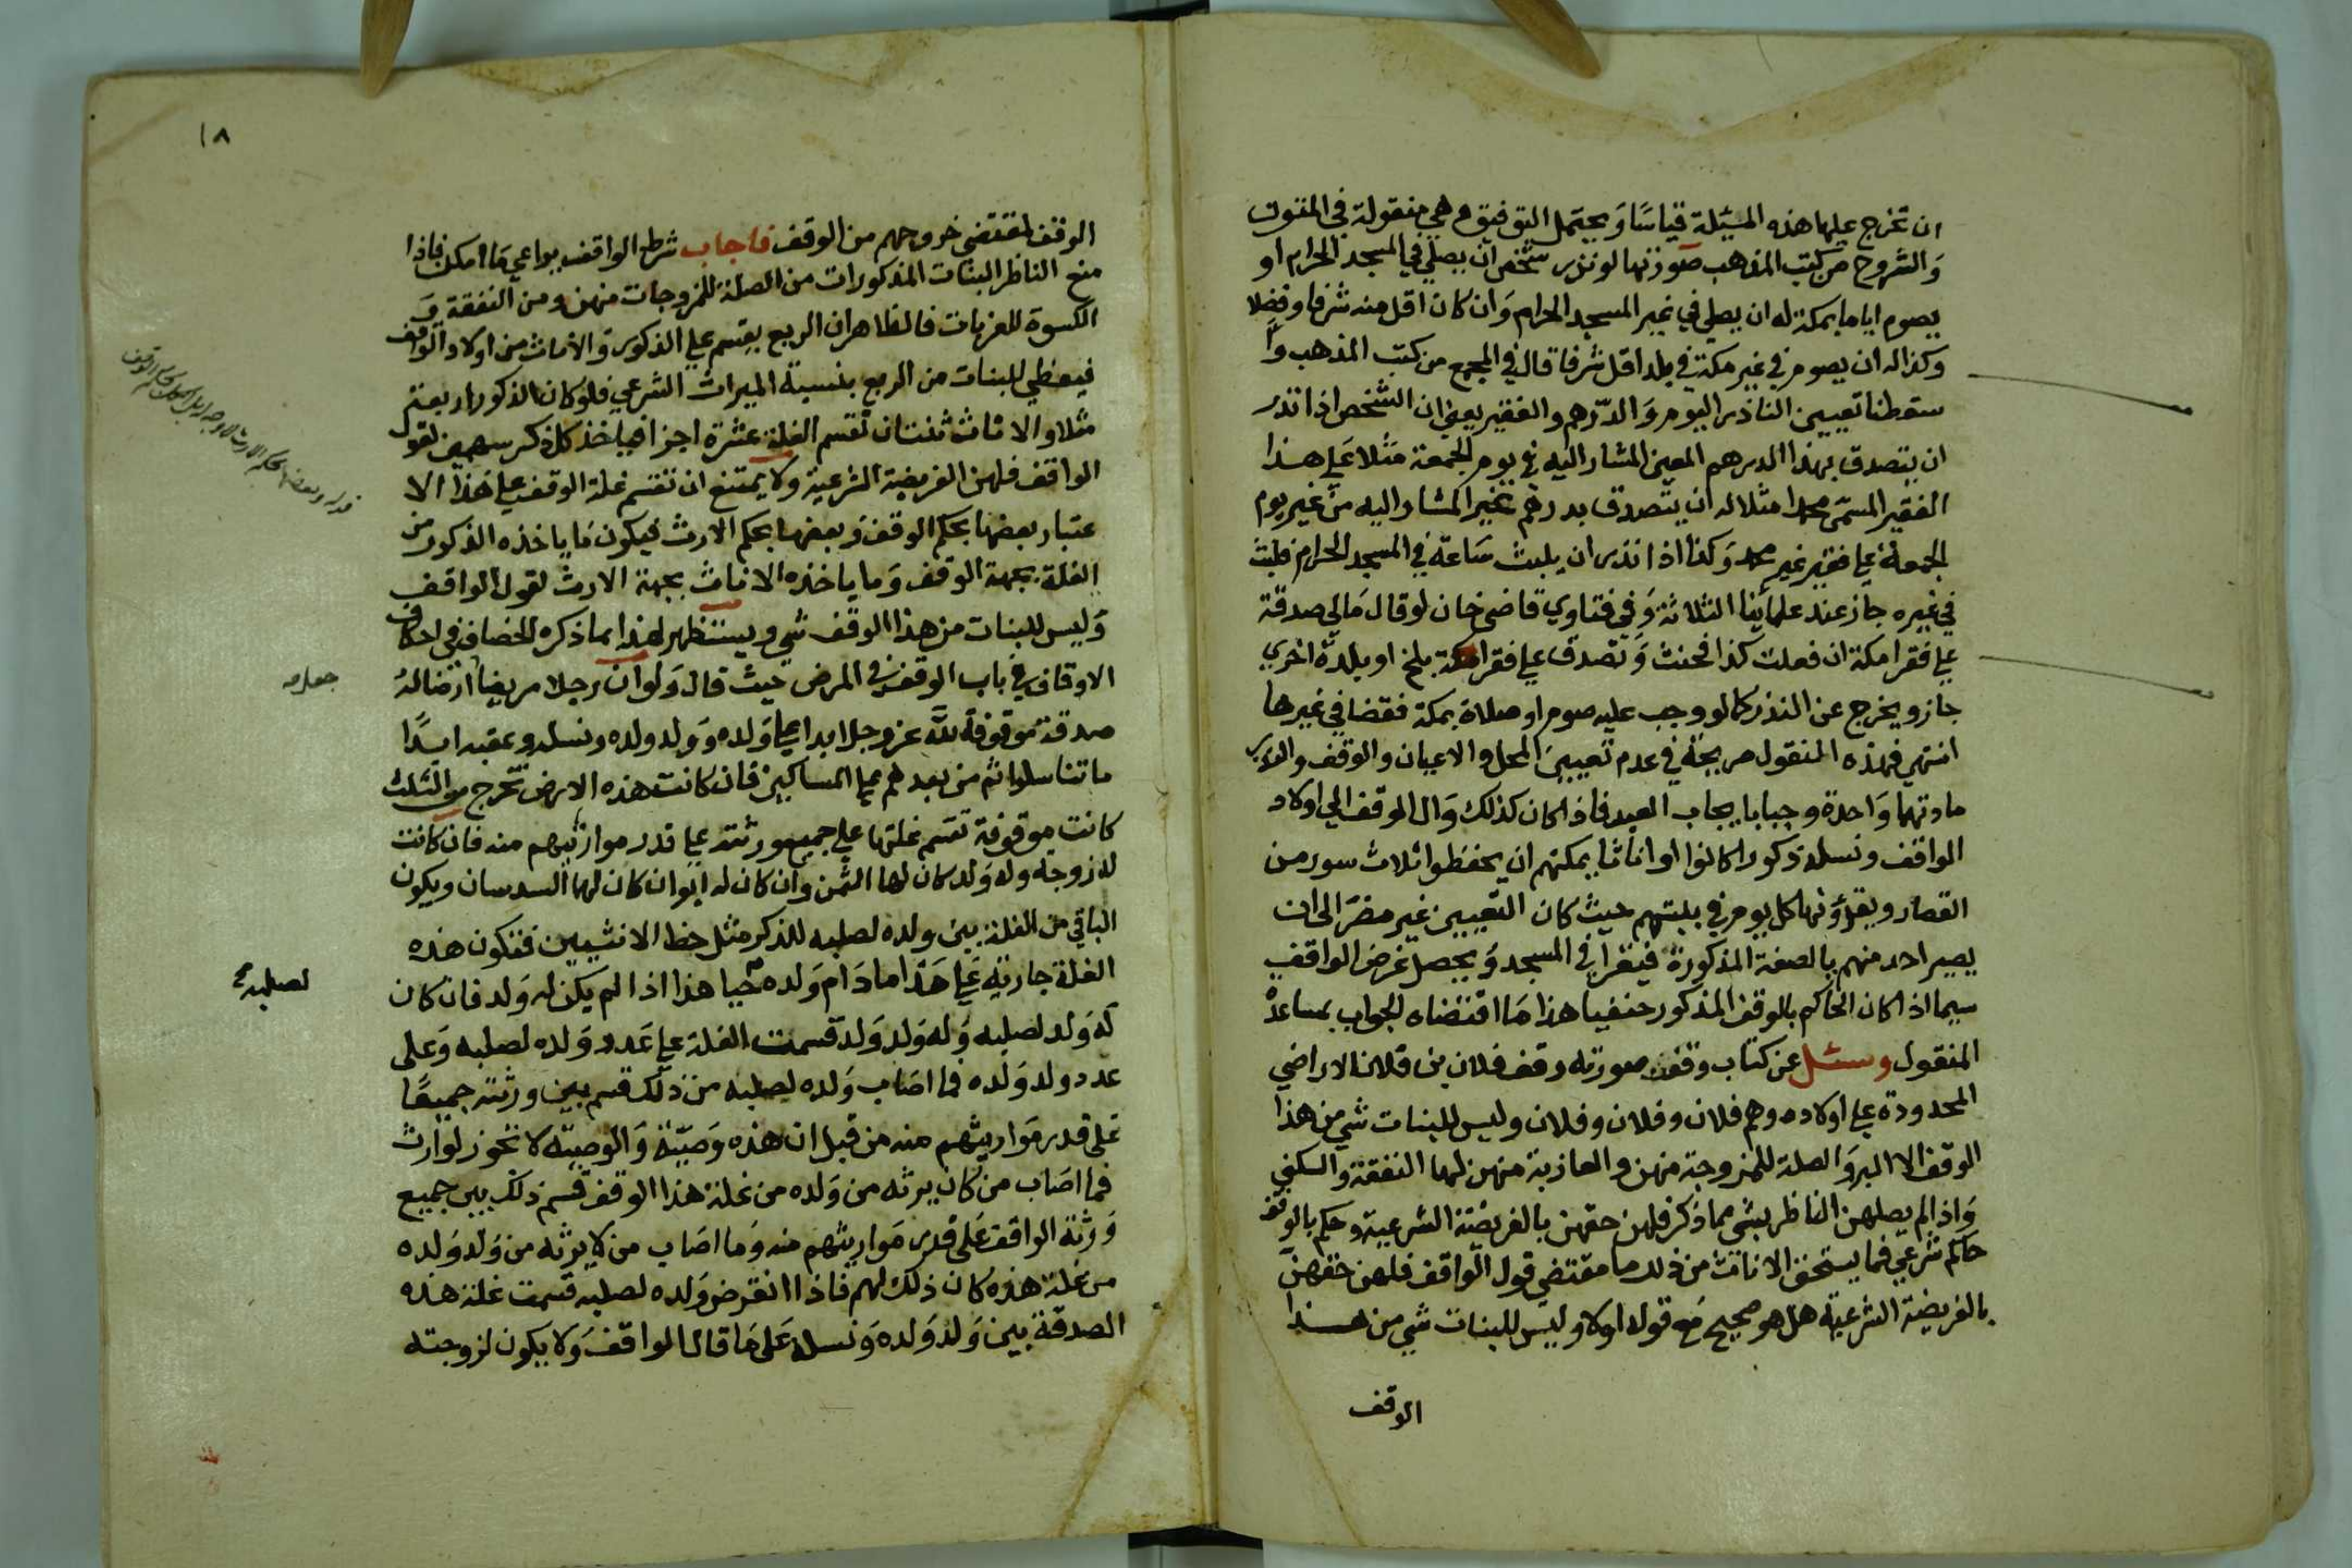 ان تخرج عليها هذه المسئلة قياسا ويحتمل التوفيق وهي منقولة في المتون
والشروح من كتب المذهب صورتها لو نذر شخص ان يصلي في المسجد الحرام او
يصوم اياما بمكة له ان يصلي في غير المسجد الحرام وان كان اقل منه شرفا وفضلا
وكذا له ان يصوم في غير مكة في بلد اقل شرفا قال في المجمع من كتب المذهب وا
سقطنا تعيين الناذر اليوم والدرهم والفقير يعني ان الشخص اذا نذر
ان يتصدق بهذا الدرهم المعين المشار اليه في يوم الجمعة مثلا على هذا
الفقير المسمى محمدا مثلا له ان يتصدق بدرهم غير المشار اليه من غير يوم
الجمعة على فقير غير محمد وكذا اذا نذر ان يلبث ساعة في المسجد الحرام فلبث
في غيره جاز عند علمائنا الثلاثة وفي فتاوي قاضي خان لو قال مالي صدقة
على فقرا مكة ان فعلت كذا فحنث وتصدق على فقرا مكة ببلخ او بلدة اخري
جاز ويخرج عن النذر كما لو وجب عليه صوم او صلاة بمكة فقضا في غيرها
انتهي فهذه المنقول صريحة في عدم تعيين المحل والاعيان والوقف والنذر
مادتهما واحدة وجبا بايجاب العبد فاذا كان كذلك وال الوقف الي اولاد
الواقف ونسله ذكورا كانوا او اناثا يمكنهم ان يحفظوا ثلاث سور من
القصار ويقرؤنها كل يوم في بيتهم حيث كان التعيين غير مضر الى ان
يصير احد منهم بالصفة المذكورة فيقرا في المسجد ويحصل غرض الواقف
سيما اذا كان الحاكم بالوقف المذكور حنفيا هذا ما اقتضاه الجواب بمساعدة
المنقول وسئل عن كتاب وقف صورته وقف فلان بن فلان الاراضي
المحدودة على اولاده وهم فلان وفلان وفلان وليس للبنات شي من هذا
الوقف الا البر والصلة للمزوجة منهن والعازبة منهن لها النفقة والسكني
واذا لم يصلهن الناظر بشي مما ذكر فلهن حقهن بالفريضة الشرعية وحكم بالوقف
حاكم شرعي فما يستحق الاناث من ذلك وما مقتضي قول الواقف فلهن حقهن
بالفريضة الشرعية هل هو صحيح مع قوله اولا وليس للبنات شي من هذا
الوقف
١٨
الوقف المقتضي خروجهم من الوقف فاجاب شرط الواقف يراعي ما امكن فاذا
منع الناظر البنات المذكورات من الصلة للمزوجات منهن ومن النفقة و
الكسوة للعزبات فالظاهر ان الريع يقسم علي الذكور والاناث من اولاد الواقف
فيعطي للبنات من الريع بنسبة الميراث الشرعي فلو كان الذكور اربعة
مثلا والاناث ثنتان تقسم الغلة عشرة اجزا فياخذ كل ذكر سهمين لقول
الواقف فلهن الفريضة الشرعية ولا يمتنع ان تقسم غلة الوقف على هذا الا
عتبار بعضها بحكم الوقف وبعضها بحكم الارث فيكون ما ياخذه الذكور من
الغلة بجهة الوقف وما ياخذه الاناث بجهة الارث لقول الواقف
وليس للبنات من هذا الوقف شي ويستظهر لهذا بما ذكره الخصاف في احكام
الاوقاف في باب الوقف في المرض حيث قال ولو ان رجلا مريضا ارضا له
صدقة موقوفة لله عز وجل ابدا على ولده وولد ولده ونسله وعقبه ابدا
ما تناسلوا ثم من بعدهم على المساكين فان كانت هذه الارض تخرج من الثلث
كانت موقوفة تقسم غلتها على جميع ورثته على قدر مواريثهم منه فان كانت
له زوجة وله ولد كان لها الثمن وان كان له ابوان كان لهما السدسان ويكون
الباقي من الغلة بين ولده لصلبه للذكر مثل حظ الانثيين فتكون هذه
الغلة جارية على هذا ما دام ولده حيا هذا اذا لم يكن له ولد فان كان
له ولد لصلبه وله ولد ولد قسمت الغلة على عدد ولده لصلبه وعلى
عدد ولد ولده فما اصاب ولده لصلبه من ذلك قسم بين ورثته جميعا
على قدر مواريثهم منه من قبل ان هذه وصية والوصية لا تجوز لوارث
فما اصاب من كان يرثه من ولده من غلة هذا الوقف قسم ذلك بين جميع
ورثة الواقف على قدر مواريثهم منه وما اصاب من لا يرثه من ولد ولده
من غلة هذه كان ذلك لهم فاذا انقرض ولده لصلبه قسمت غلة هذه
الصدقة بين ولد ولده ونسله على ما قال الواقف ولا يكون لزوجته
جعل
لصلبه